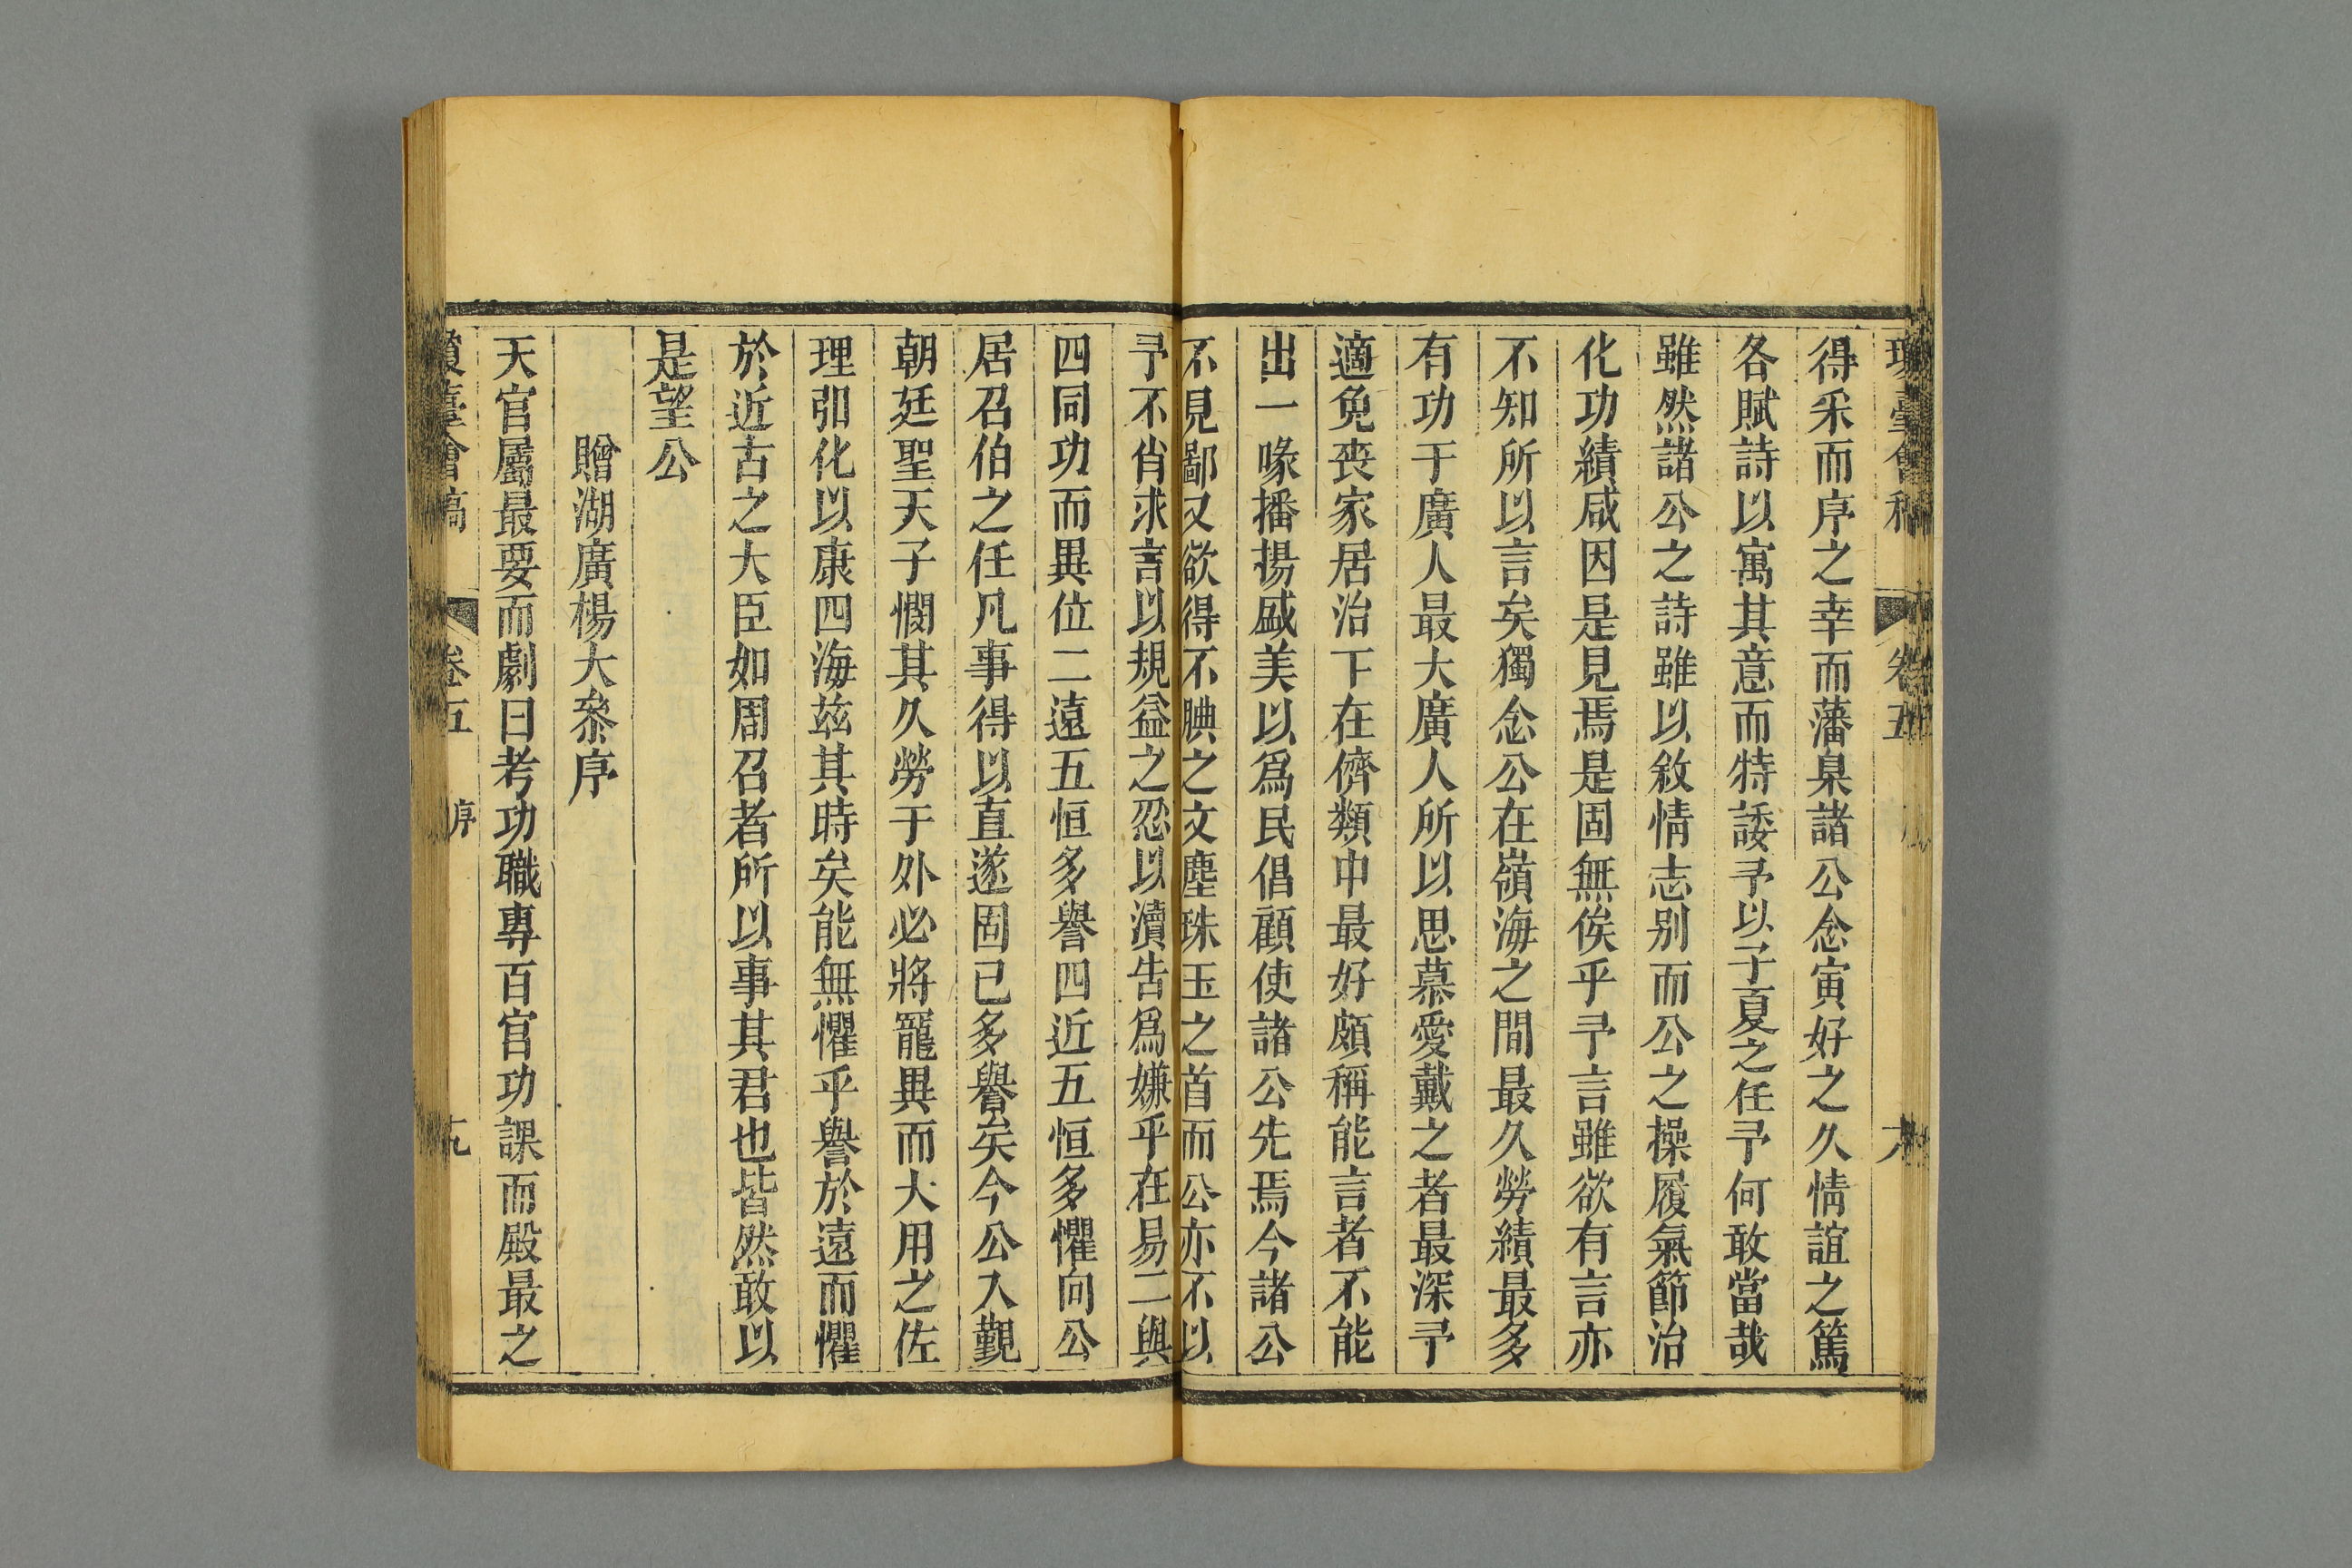 得采而序之幸而藩臬諸公念寅好之久情誼之篤
各賦詩以寓其意而特諉予以子夏之任予何敢當哉
雖然諸公之詩雖以敘情志别而公之操履氣節治
化功績咸因是見焉是固無俟乎予言雖欲有言亦
不知所以言矣獨念公在嶺海之間最久勞績最多
有功于廣人最大廣人所以思慕愛戴之者最深予
適免喪家居治下在儕類中最好頗稱能言者不能
出一喙播揚盛美以爲民倡顧使諸公先焉今諸公
不見鄙又欲得不腆之文塵珠玉之首而公亦不以
予不肖求言以規益之忍以瀆告爲嫌乎在易二與
四同功而異位二遠五恒多譽四近五恒多懼向公
居召伯之任凡事得以直遂固已多譽矣今公入覲
朝廷聖天子憫其久勞于外必將寵異而大用之佐
理弘化以康四海兹其時矣能無懼乎譽於遠而懼
於近古之大臣如周召者所以事其君也皆然敢以
是望公
贈湖廣楊大叅序
天官屬最要而劇曰考功職專百官功課而殿最之
臺會稿 卷五 序